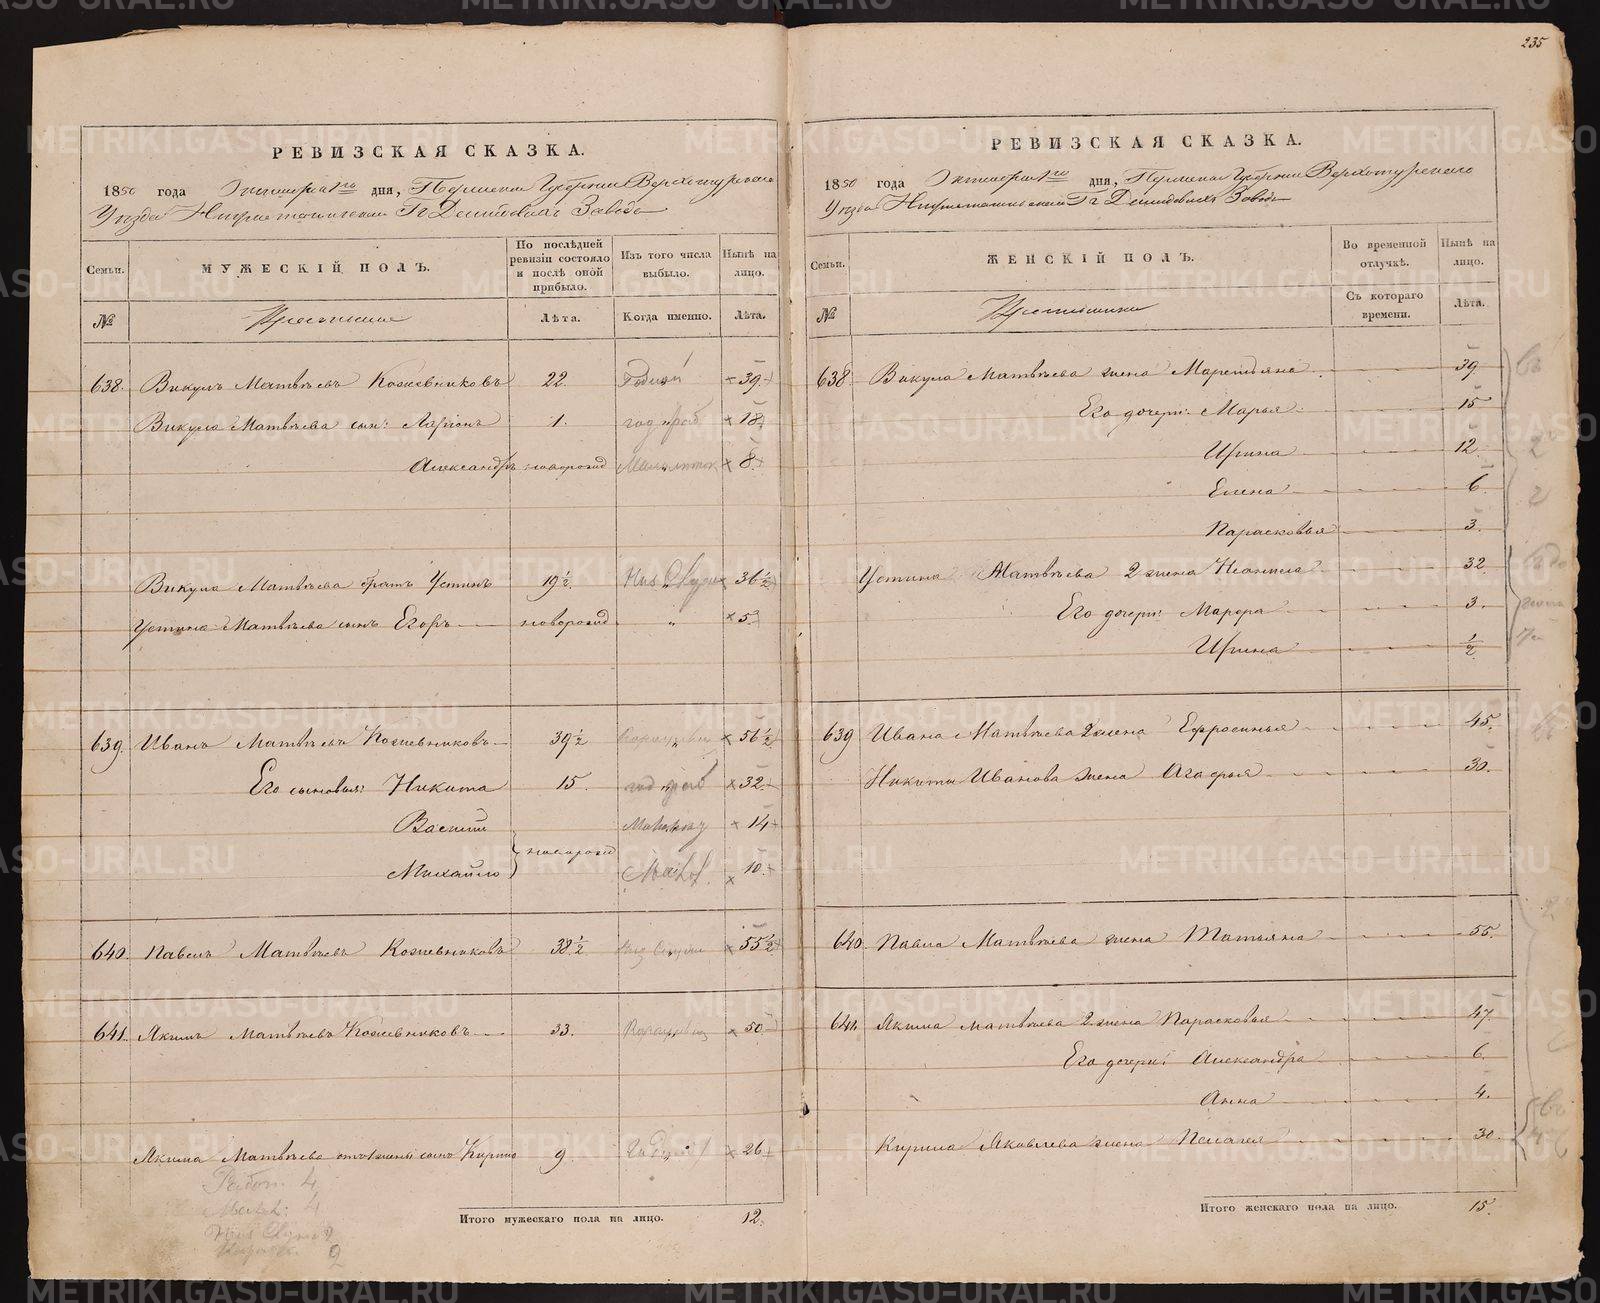 235
РЕВИЗСКАЯ СКАЗКА.
1850 года Октября 1го дня, Пермской Губернiи Верхотурскаго
Уѣзда Нижнетагильскаго Гг. Демидовыхъ Завода
Семьи.
МУЖЕСКІЙ ПОЛЪ.
По послѣдней ревизіи состояло и послѣ оной прибыло.
Изъ того числа выбыло.
Нынѣ на лицо.
№
Крестьяне
Лѣта.
Когда именно.
Лѣта.
638. Викулъ Матвѣевъ Кожевниковъ 22. Годной 39
Викула Матвѣева сынъ: Ларіонъ 1. год. раб 18
Александръ новорожд Малолѣток 8.
Викула Матвѣева братъ Устинъ 19½ 36½
Устина Матвѣева сынъ Егоръ новорожд " 5
639. Иванъ Матвѣевъ Кожевниковъ 39½ 56½
Его сыновья: Никита 15. год раб 32.
Василій 14
новорожд
Михайло 10.
640. Павелъ Матвѣевъ Кожевниковъ 38½ 55½
641. Якимъ Матвѣевъ Кожевниковъ 33. 50
Якима Матвѣева сынъ Кирило 9. 26
Работ. 4
4
2
2
Итого мужескаго пола на лицо. 12.
РЕВИЗСКАЯ СКАЗКА.
1850 года Октября 1го дня, Пермской Губернiи Верхотурскаго
Уѣзда Нижнетагильскаго Гг. Демидовыхъ Завода
Семьи.
ЖЕНСКІЙ ПОЛЪ.
Во временной отлучкѣ.
Нынѣ на лицо.
№
Крестьянки
Съ котораго времени.
Лѣта.
638 Викула Матвѣева жена Маремьяна 39
Его дочери: Марья 15
Ирина 12.
Елена 6
Парасковья 3.
Устина Матвѣева 2 жена Неонила 32
Его дочери: Марѳа 3.
Ирина ½
639 Ивана Матвѣева 2 жена Ефросинья 45.
Никиты Иванова жена Агафья 30.
640. Павла Матвѣева жена Татьяна 55.
641. Якима Матвѣева 2 жена Парасковья 47.
Его дочери: Александра 6.
Анна 4.
Кирила Яковлева жена Пелагея 30.
Итого женскаго пола на лицо. 15.
METRIKI.GASO-URAL.RU